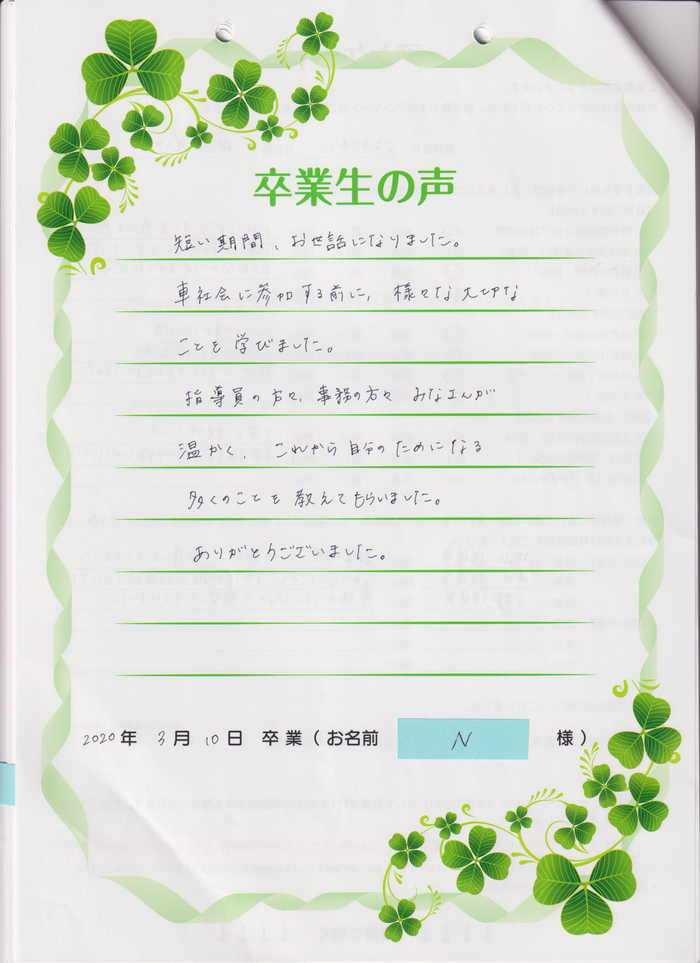 卒業生の声
短い期間、お世話になりました。
車社会に参加する前に、様々な大切な
ことを学びました。
指導員の方々、事務の方々 みなさんが
温かく、これから自分のためになる
多くのことを教えてもらいました。
ありがとうございました。
2020年 3月 10日 卒業(お名前 N 様)